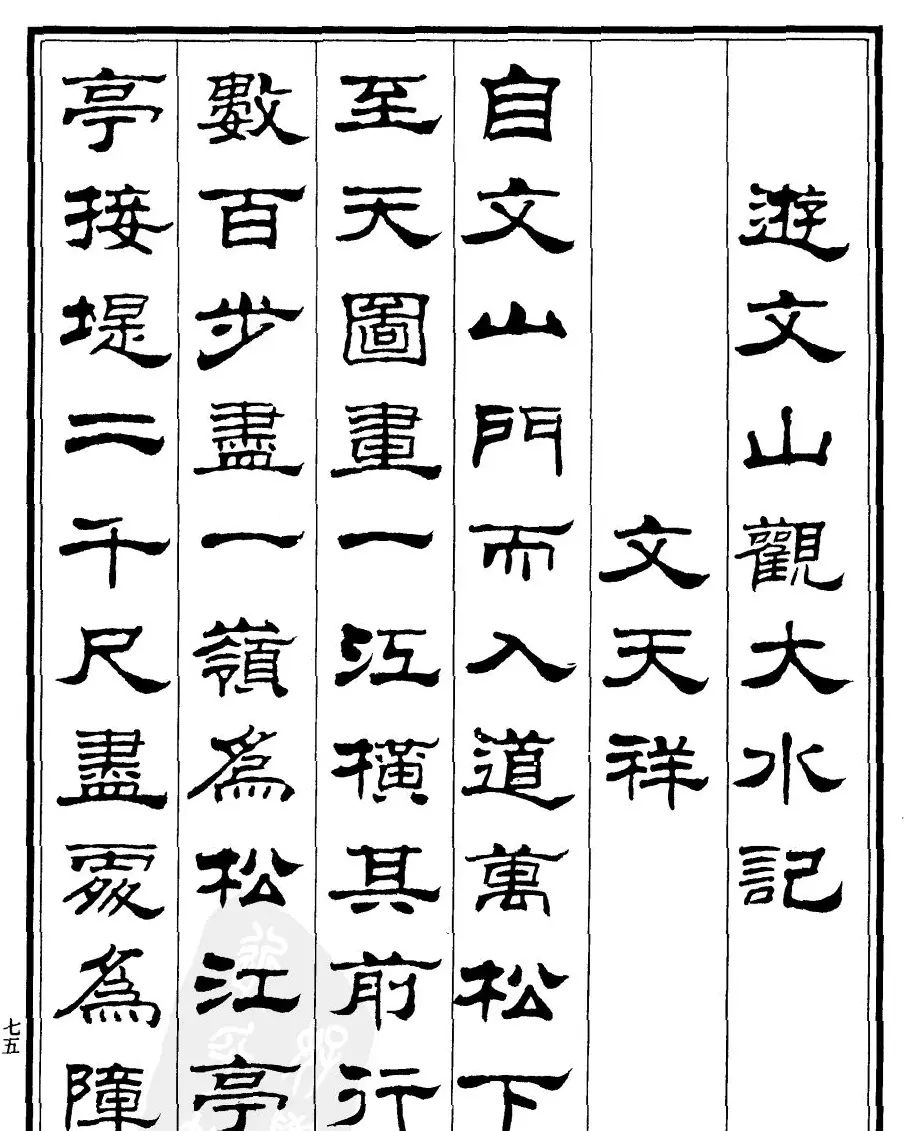 遊文山觀大水記
文天祥
自文山門而入道萬松下
至天圖畫一江橫其前行
數百步盡一嶺為松江亭
亭接堤二千尺盡處為障
七五